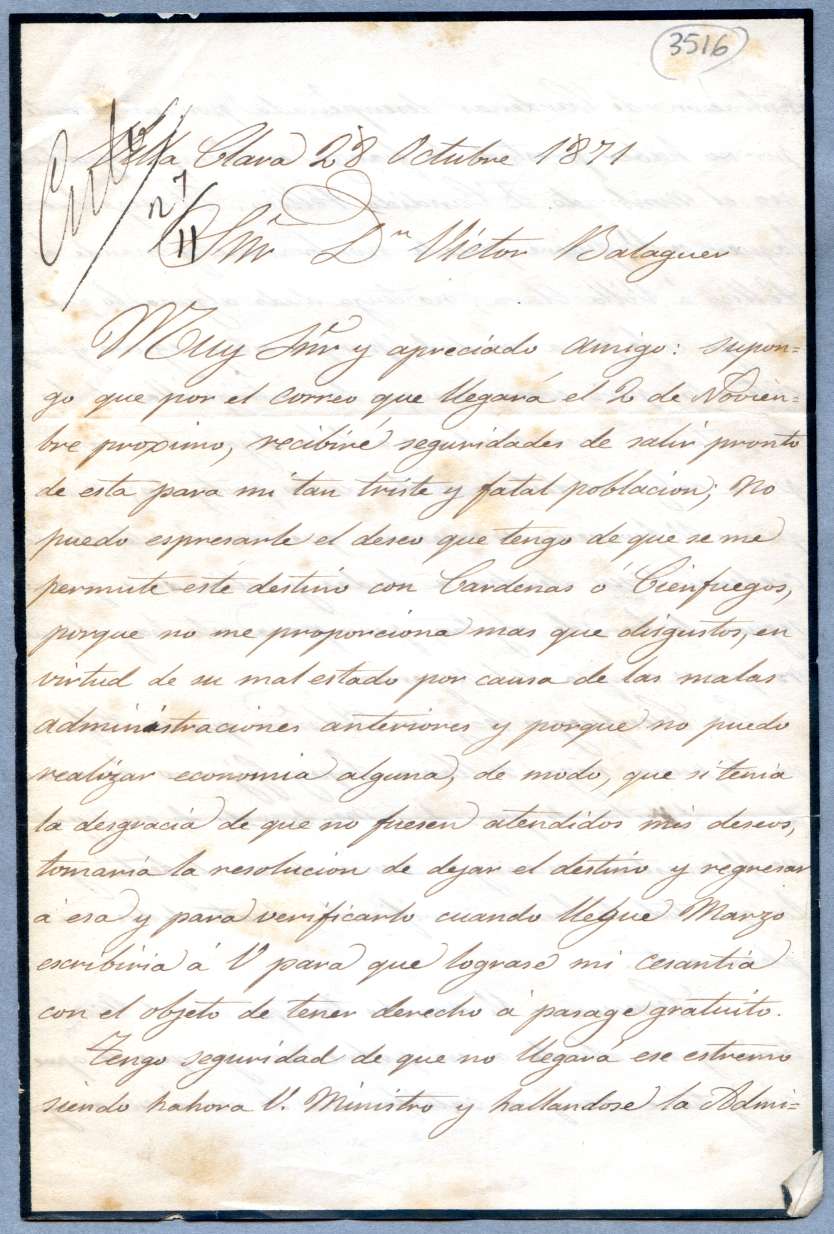 3516
Villa Clara 28 Octubre 1871
Cont.º
27/11
Sñr Dn Victor Balaguer
Muy Sñr y apreciado amigo: supon=
go que por el correo que llegará el 2 de Novien=
bre proximo, recibiré seguridades de salir pronto
de esta para mi tan triste y fatal poblacion; no
puedo espresarle el deseo que tengo de que se me
permute este destino con Cardenas ó Cienfuegos,
porque no me proporciona mas que disgustos, en
virtud de su mal estado por causa de las malas
administraciones anteriores y porque no puedo
realizar economia alguna, de modo, que si tenia
la desgracia de que no fuesen atendidos mis deseos,
tomaria la resolucion de dejar el destino y regresar
á esa y para verificarlo cuando llegue Marzo
escribiria á V para que lograse mi cesantia
con el objeto de tener derecho á pasage gratuito.
Tengo seguridad de que no llegará ese estremo
siendo hahora V. Ministro y hallandose la Admi=